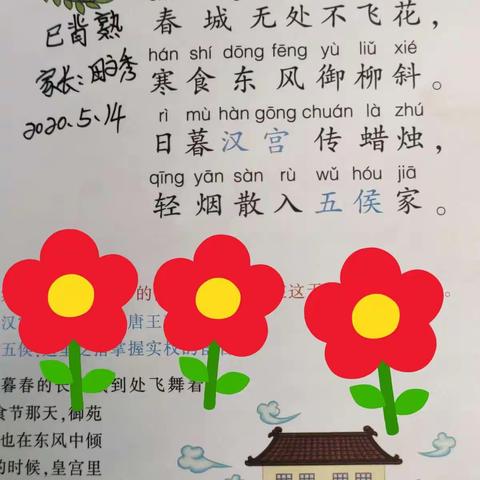 已背熟
家长:
2020.5.14
春城无处不飞花，
hán shí dōng fēng yù liǔ xié
寒食东风御柳斜。
rì mù hàn gōng chuán là zhú
日暮汉宫传蜡烛，
qīng yān sàn rù wǔ hóu jiā
轻烟散入五侯家。
的
这
汉
唐王
五侯 掌握实权的
暮春的长 到处飞舞着
食节那天，御苑
也在东风中倾
的时候，皇宫里